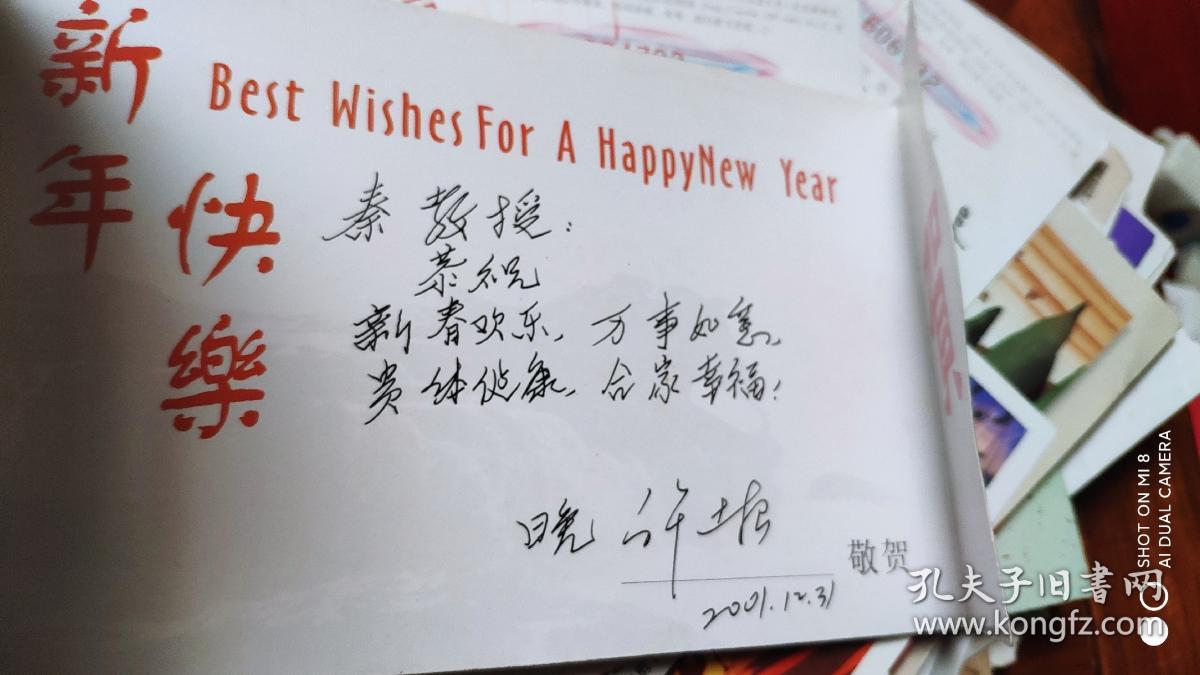 新年快樂
Best Wishes For A HappyNew Year
秦教授：
恭祝
新春欢乐、万事如意、
贵体健康、合家幸福！
晚 许
敬贺
2001.12.31
孔夫子旧书网
www.kongfz.com
SHOT ON MI 8
AI DUAL CAMERA